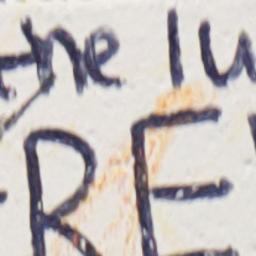 the lu
RE